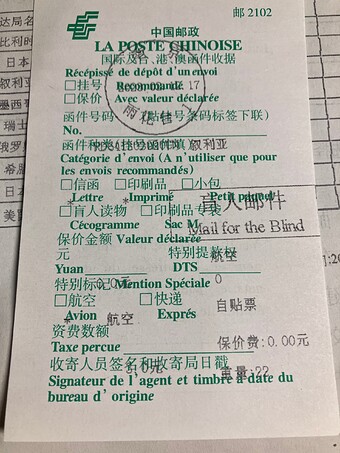 邮 2102
中国邮政
LA POSTE CHINOISE
国际及台、港、澳函件收据
Récépissé de dépôt d'un envoi
□挂号 Recommandé 17
□保价 Avec valeur déclarée
雨花台
函件号码 (贴挂号条码标签下联)
No.
函件种类(挂号函件免填) 叙利亚
Catégorie d'envoi (A n'utiliser que pour
les envois recommandés)
□信函 □印刷品 □小包
Lettre Imprimé Petit paquet
盲人邮件
□盲人读物 □印刷品专袋
Mail for the Blind
Cécogramme Sac M
保价金额 Valeur déclarée
元 特别提款权
航空
Yuan DTS
0.0元 0
特别标记 Mention Spéciale
□航空 □快递 自贴票
Avion Exprés
* 航空
资费数额
Taxe percue 保价费:0.00元
收寄人员签名和收寄局日戳
重量:22
Signature de l'agent et timbre à date du
bureau d'origine